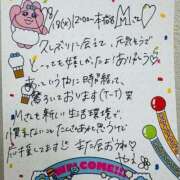 8/19(火)12:00~本指名Mさま
久しぶりに会えて、元気そうで
とっても嬉しかったよ!ありがとう
あっという間に時間経って
驚いております(T-T)笑
Mさまも新しい生活環境で
慣れないこともたくさんあると思うけど
応援してます また会おうね
WELCOME!!